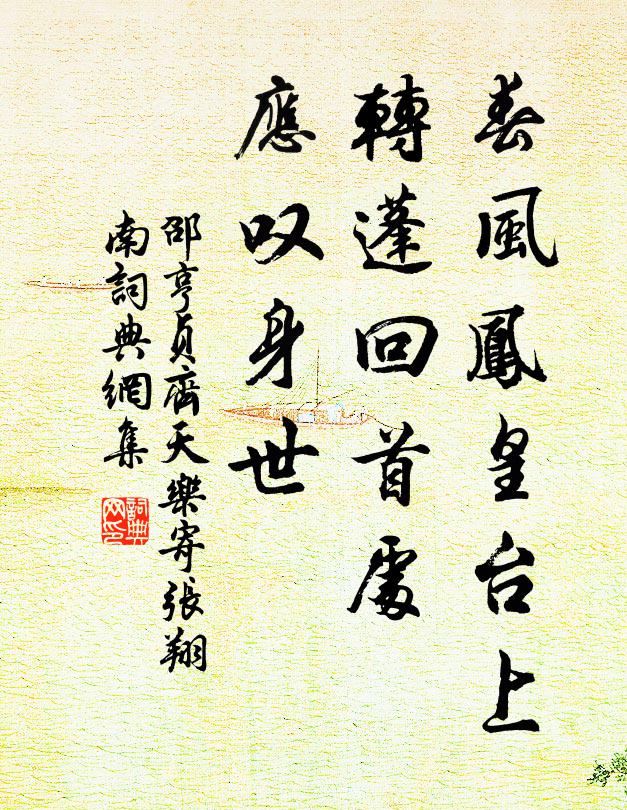 春風鳳皇台上
轉蓬回首處
應叹身世
邵亨貞齊天樂寄張翔
南詞典網集
詞典
网印